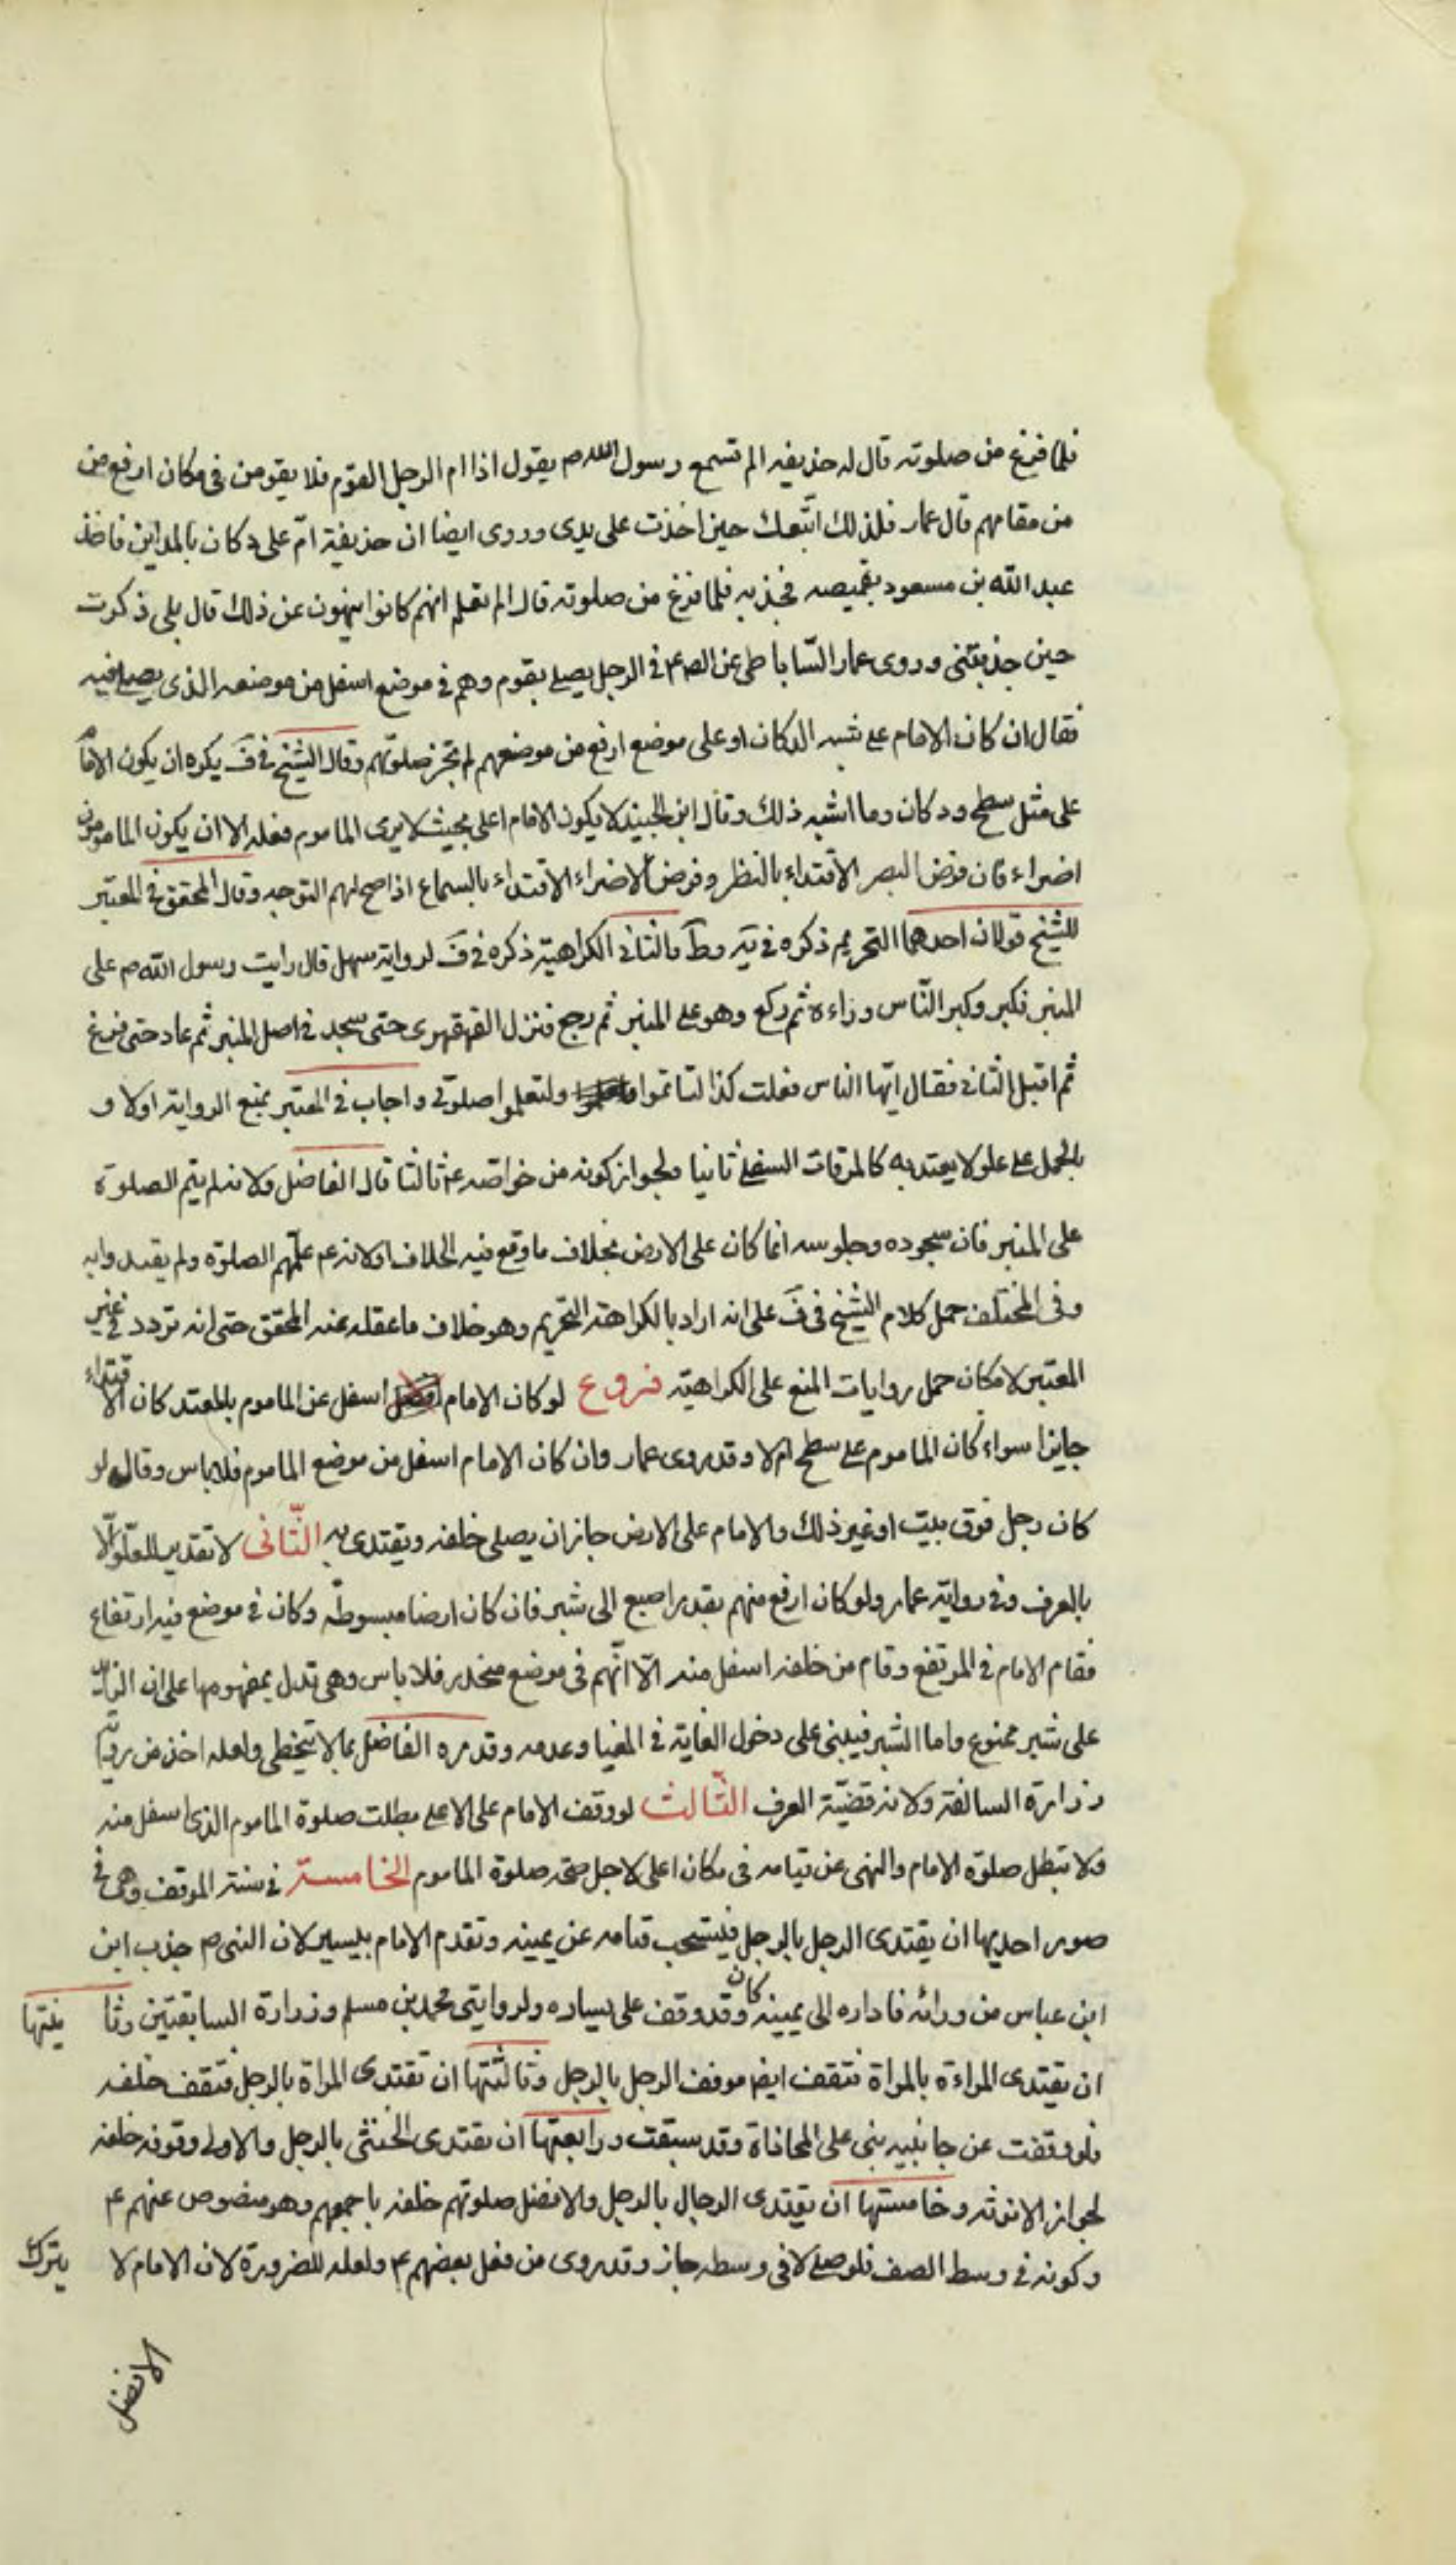 فلما فرغ من صلوته قال له حذيفه الم تسمع رسول الله ص يقول اذا ام الرجل القوم فلا يقومن فى مكان ارفع من
من مقامهم قال عمار فلذلك اتبعك حين اخذت على يدى وروى ايضا ان حذيفة امّ على دكان بالمداين فاخذ
عبد الله بن مسعود بقميصه فجذبه فلما فرغ من صلوته قال الم تعلم انهم كانوا ينهون عن ذلك قال بلى ذكرت
حين جذبتنى وروى عمار السّاباطى عن الص ع فى الرجل يصلى بقوم وهم فى موضع اسفل من موضعه الذى يصلى فيه
فقال ان كان الامام على شبه الدكان او على موضع ارفع من موضعهم لم تجز صلوتهم وقال الشيخ فى فَ يكره ان يكون الامام
على مثل سطح ودكان وما اشبه ذلك وقال ابن الجنيد لا يكون الامام اعلى بحيث لا يرى الماموم فعله الا ان يكون المامومون
اضراء فان فرض البصر الاقتداء بالنظر وفرض الاضراء الاقتداء بالسماع اذا صح لهم التوجه وقال المحقق فى المعتبر
للشيخ قولان احدهما التحريم ذكره فى يَه وطَ والثانى الكراهية ذكره فى فَ لرواية سهل قال رايت رسول الله ص على
المنبر فكبر وكبر النّاس وراءه ثم ركع وهو على المنبر ثم رجع فنزل القهقهرى حتى سجد فى اصل المنبر ثم عاد حتى فرغ
ثم اقبل الثانى فقال ايّها الناس فعلت كذا لتاتموا ولتعلموا صلوتى واجاب فى المعتبر بمنع الرواية اولا و
بالحمل على علو لا يعتد به كالمرقات السفلى ثانيا ولجواز كونه من خواصه ع ثالثا قال الفاضل ولانه لم يتم الصلوة
على المنبر فان سجوده وجلوسه انما كان على الارض بخلاف ما وقع فيه الخلاف اولانه ع علّمهم الصلوة ولم يقتدوا به
وفى المختلف حمل كلام الشيخ فى فَ على انه اراد بالكراهة التحريم وهو خلاف ما عقله عنه المحقق حتى انه تردد فى غير
المعتبر لامكان حمل روايات المنع على الكراهية فروع لو كان الامام اسفل عن الماموم بالمعتد كان الاقتداء
جايزا سواء كان الماموم على سطح ام لا وقد روى عمار وان كان الامام اسفل من موضع الماموم فلا باس وقال لو
كان رجل فوق بيت او غير ذلك والامام على الارض جاز ان يصلى خلفه ويقتدى به الثّانى لا تقدير للعلو الّا
بالعرف وفى رواية عمار ولو كان ارفع منهم بقدر اصبع الى شبر فان كان ارضا مبسوطة وكان فى موضع فيه ارتفاع
فقام الامام فى المرتفع وقام من خلفه اسفل منه الّا انّهم فى موضع منحدر فلا باس وهى تدل بمفهومها على ان الزائد
على شبر ممنوع واما الشبر فيبنى على دخول الغاية فى المغيا وعدمه وقدره الفاضل بما لا يتخطى ولعله اخذ من رواية
زرارة السالفة ولانه قضيّة العرف الثّالث لو وقف الامام على الاعلى بطلت صلوة الماموم الذى اسفل منه
ولا تبطل صلوة الامام والنهى عن قيامه فى مكان اعلى لاجل صحة صلوة الماموم الخامسة فى سنة الموقف وهى فى
صور احديها ان يقتدى الرجل بالرجل فيستحب قيامه عن يمينه وتقدم الامام بيسير لان النبى ص جذب ابن
ابن عباس من ورائه فاداره الى يمينه وقد كان وقف على يساره ولروايتى محمد بن مسلم وزرارة السابقتين وثا نيتها
ان يقتدى المراءة بالمراة فتقف ايضا موقف الرجل بالرجل وثالثتها ان تقتدى المراة بالرجل فتقف خلفه
فلو وقفت عن جانبيه بنى على المحاذاة وقد سبقت ورابعتها ان يقتدى الخنثى بالرجل والاولى وقوفه خلفه
لجواز الانوثه وخامستها ان يقتدى الرجال بالرجل والافضل صلوتهم خلفه باجمعهم وهو منصوص عنهم ع
وكونه فى وسط الصف فلو صلى لا فى وسطه جاز وقد روى من فعل بعضهم ع ولعله للضرورة لان الامام لا يترك
الافضل